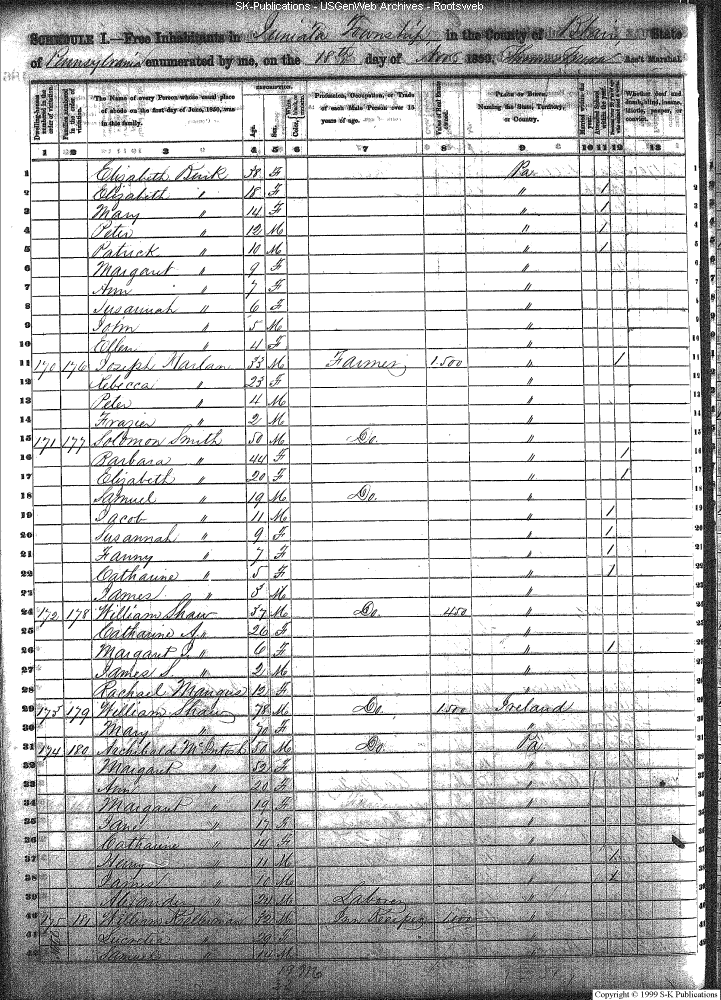 SK-Publications - USGenWeb Archives - Rootsweb
SCHEDULE I.—Free Inhabitants in Juniata Township in the County of Blair State
of Pennsylvania enumerated by me, on the 18th day of Nov 1850. Thomas Ass't Marshal.
DESCRIPTION.
Dwelling-houses numbered in the order of visitation. Families numbered in the order of visitation. The Name of every Person whose usual place of abode on the first day of June, 1850, was in this family. Age. Sex. Color, Profession, Occupation, or Trade of each Male Person over 15 years of age. Value of Real Estate owned. PLACE OF BIRTH. Naming the State, Territory, or Country. Married within the year. Attended School within the year. Whether deaf and dumb, blind, insane, idiotic, pauper, or convict.
1 2 3 4 5 6 7 8 9 10 11 12 13
1 Elizabeth 38 F Pa 1
2 Elizabeth " 18 F " / 2
3 Mary " 14 F " / 3
4 Peter " 12 M " / 4
5 Patrick " 10 M " / 5
6 Margaret " 9 F " 6
7 Ann " 7 F " 7
8 Susannah " 6 F " 8
9 John " 5 M " 9
10 Ellen " 4 F " 10
11 170 176 Joseph Harlan 33 M Farmer 1500 " / 11
12 Rebecca " 23 F " 12
13 Peter " 4 M " 13
14 Frazier " 2 M " 14
15 171 177 Solomon Smith 50 M Do. " 15
16 Barbara " 44 F " / 16
17 Elizabeth " 20 F " / 17
18 Samuel " 19 M Do. " 18
19 Jacob " 11 M " / 19
20 Susannah " 9 F " / 20
21 Fanny " 7 F " / 21
22 Catharine " 5 F " / 22
23 James " 3 M " 23
24 172 178 William Shaw 37 M Do. 450 " 24
25 Catharine A. " 26 F " 25
26 Margaret J. " 6 F " / 26
27 James S. " 2 M " 27
28 Rachael Mangus 12 F " 28
29 173 179 William Shaw 78 M Do. 1500 Ireland 29
30 Mary " 70 F " 30
31 174 180 Archibald McIntosh 50 M Do. Pa 31
32 Margaret " 52 F " 32
33 Ann " 20 F " 33
34 Margaret " 19 F " 34
35 Jane " 17 F " 35
36 Catharine " 14 F " 36
37 Henry " 11 M " / 37
38 James " 10 M " / 38
39 Alexander " 24 M Laborer " 39
40 175 181 William 32 M Inn Keeper " 40
41 Lucretia " 29 F " 41
42 Samuel " M " 42
19 M
Copyright © 1999 S-K Publications